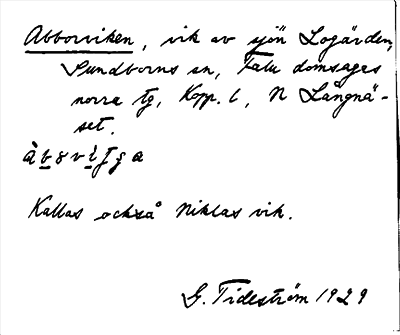 Abborviken, vik av sjön Logärden,
Sundborns sn, Falu domsagas
norra tg, Kopp. l, N Långnä-
set.
Kallas också Niklas vik.
G. Tideström 1929